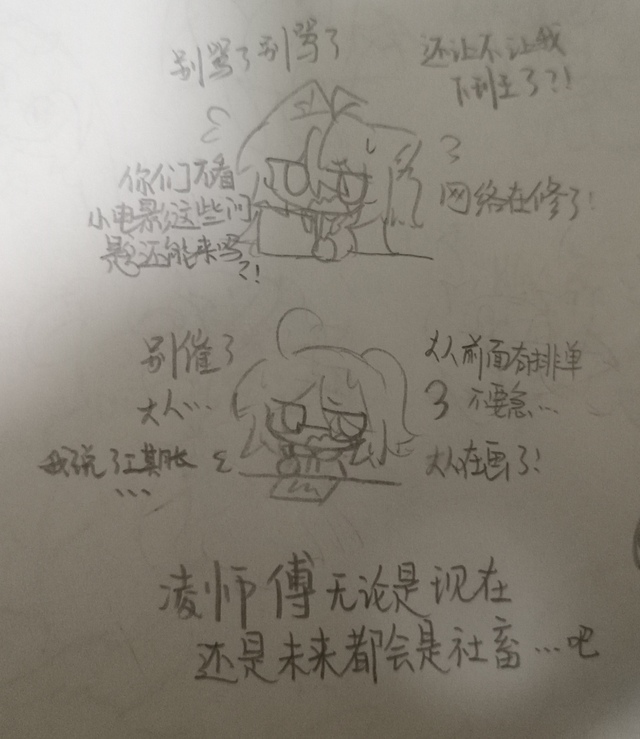 别骂了别骂了
还让不让我
下到主了?!
你们不看
小电影这些问
题还能来吗
?!
网络在修了!
别催了
大人…
我说了工期长
…
大人前面有排单
不要急…
大人在画了!
凌师傅无论是现在
还是未来都会是社畜…吧